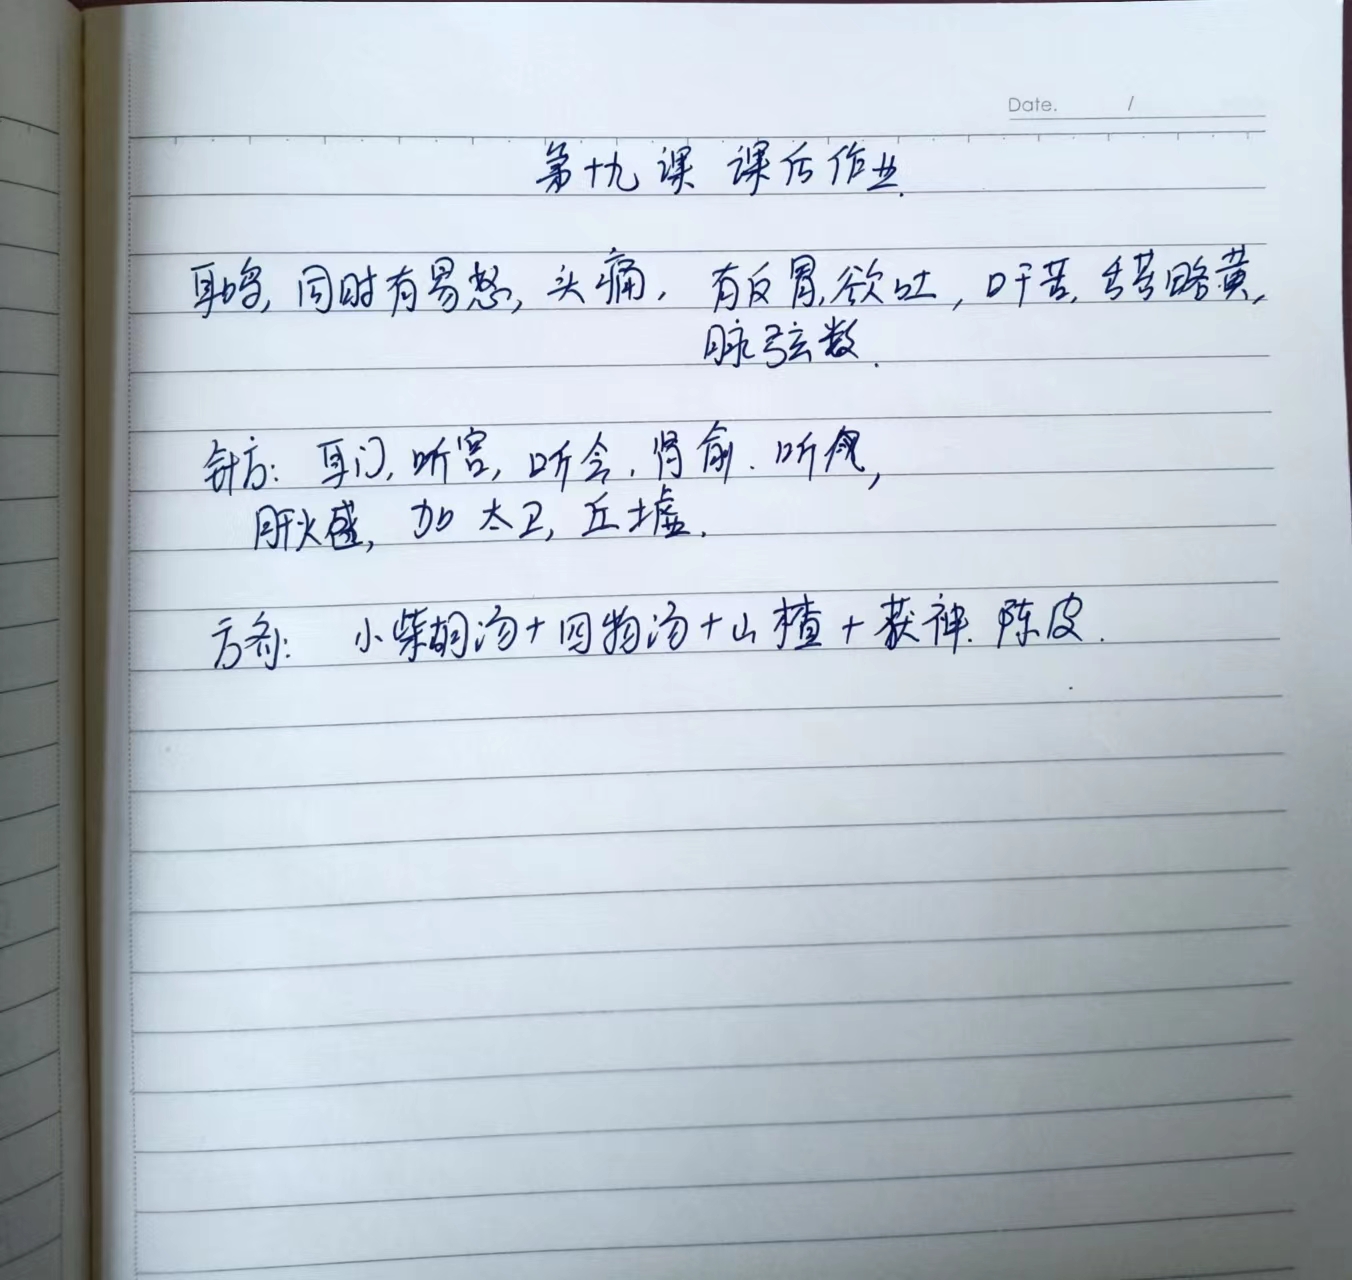 Date. /
第十九课 课后作业.
耳鸣, 同时有易怒, 头痛, 有反胃, 欲吐, 口干苦, 舌苔略黄,
脉弦数.
针方: 耳门, 听宫, 听会, 肾俞. 听
肝火盛, 加太卫, 丘墟.
方剂: 小柴胡汤+四物汤+山楂+茯神. 陈皮.